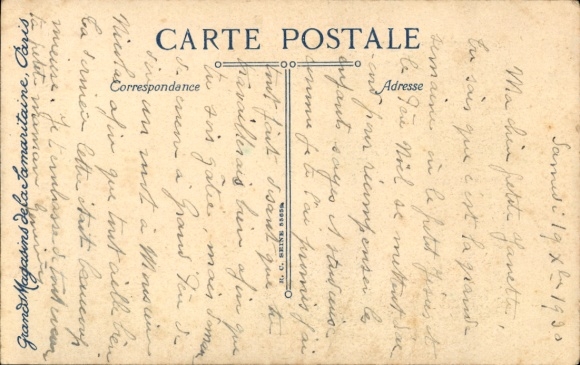 CARTE POSTALE
Correspondance
Adresse
Grands Magasins de la Samaritaine, Paris
R. C. SEINE
Samedi 19 Xbre 1930
Ma chère petite
tu sais que c'est la grande
semaine où le petit Jésus et
le Père Noël se mettent d'ac
cord pour récompenser les
enfants sages et studieux
comme je te l'ai promis j'ai
tout fait disant que tu
travaillais bien afin que
tu sois gâtée mais
de encore à Grand Père de
un mot à Monsieur
Nicolas afin que tout aille bien
ta dernière lettre était beaucoup
mieux. Je t'embrasse de tout cœur
ta petite maman